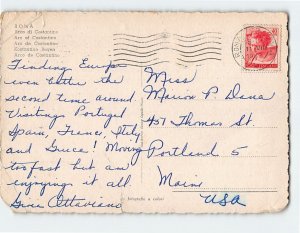 ROMA
Arco di Costantino
Arc de Costantino
Arc of Costantino
Arco de Costantino
Finding Europe
even better the
second time around.
Visiting Portugal
Spain, France, Italy
and Greece! Moving
too fast but am
enjoying it all.
Miss
Marion P. Dana
457 Thomas St.
Portland 5
Maine
USA
fotografia a colori